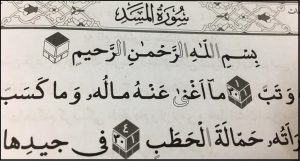 سُورَةُ المَسَدِ
بِسْمِ اللَّهِ الرَّحْمَٰنِ الرَّحِيمِ
وَتَبَّ مَا أَغْنَىٰ عَنْهُ مَالُهُ وَمَا كَسَبَ
حَمَّالَةَ الْحَطَبِ ٤ فِي جِيدِهَا